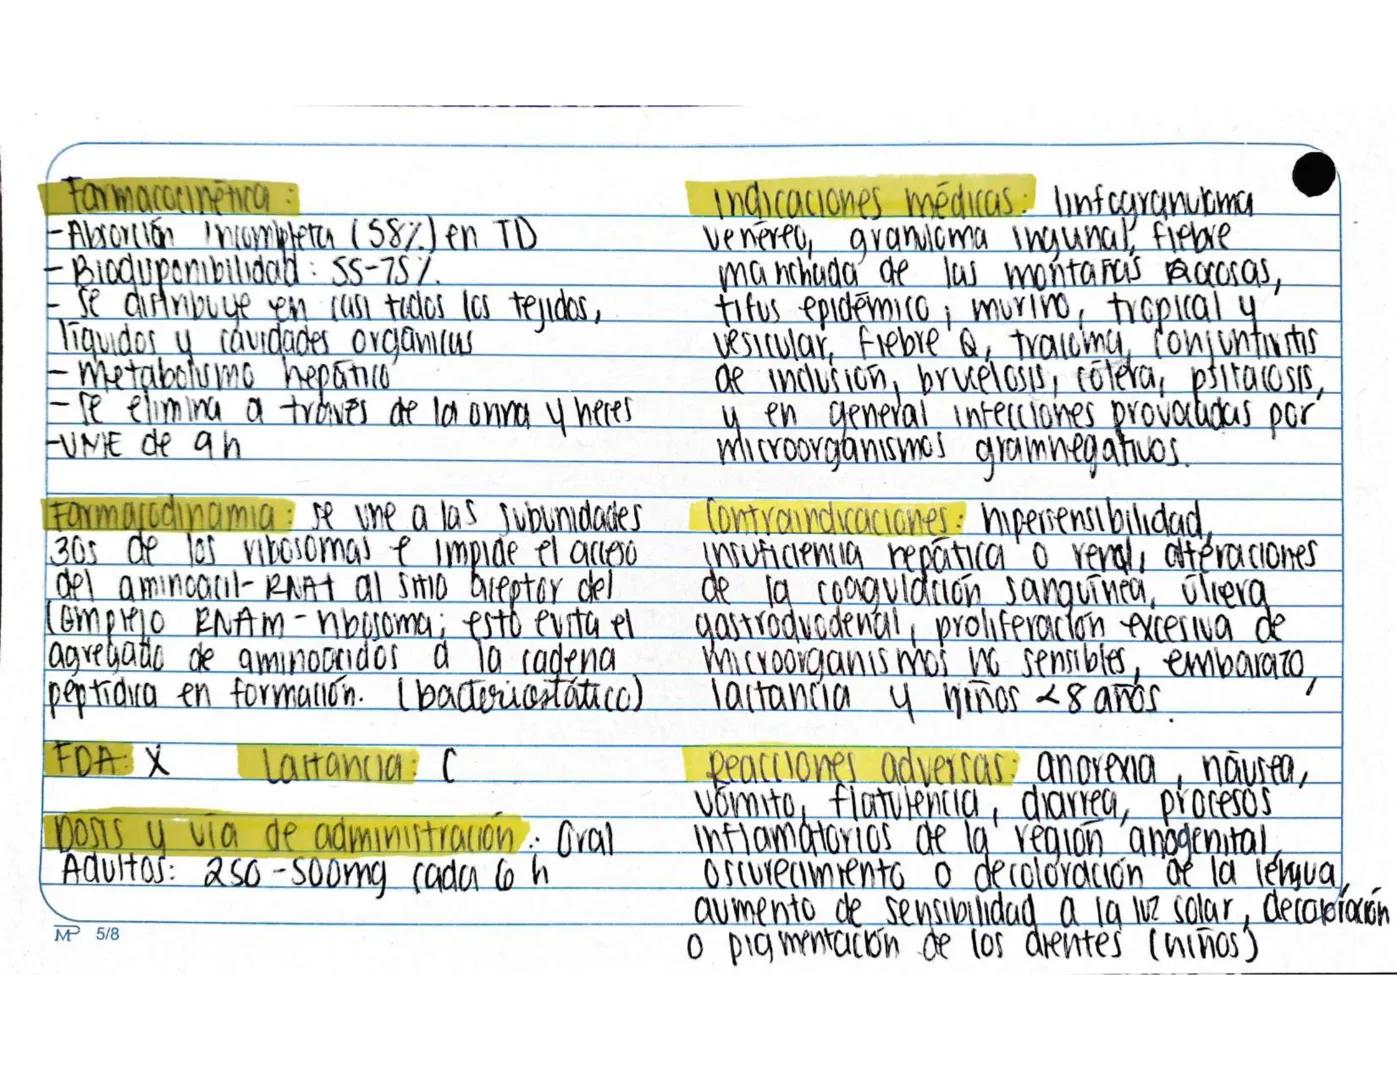 Farmacocinética:
- Absorción incompleta (58%) en TD
- Biodisponibilidad: 55-75%.
- Se distribuye en casi todos los tejidos,
líquidos y cavidades orgánicas
- Metabolismo hepático
- Se elimina a través de la orina y heces
- VME de 9h
Farmacodinamia: se une a las subunidades
30s de los ribosomas e impide el acceso
del aminoacil-RNAt al sitio aceptor del
complejo RNAm-ribosoma; esto evita el
agregado de aminoácidos a la cadena
peptídica en formación. (bacteriostático)
FDA: X Lactancia: C
Dosis y vía de administración: Oral
Adultos: 250-500mg cada 6 h
MP 5/8
Indicaciones médicas: linfogranuloma
venéreo, granuloma inguinal, fiebre
manchada de las montañas Rocosas,
tifus epidémico, murino, tropical y
vesicular, fiebre Q, tracoma, conjuntivitis
de inclusión, brucelosis, cólera, psitacosis,
y en general infecciones provocadas por
microorganismos gramnegativos.
Contraindicaciones: hipersensibilidad,
insuficiencia hepática o renal, alteraciones
de la coagulación sanguínea, úlcera
gastroduodenal, proliferación excesiva de
microorganismos no sensibles, embarazo,
lactancia y niños <8 años.
Reacciones adversas: anorexia, náusea,
vómito, flatulencia, diarrea, procesos
inflamatorios de la región anogenital,
oscurecimiento o decoloración de la lengua,
aumento de sensibilidad a la luz solar, decoloración
o pigmentación de los dientes (niños)